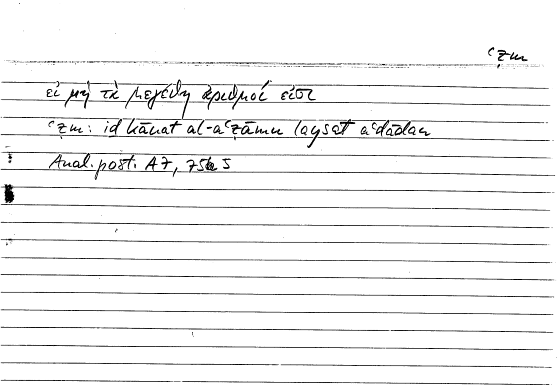 ʿẓm
εἰ μὴ τὰ μεγέθη ἀριθμοί εἰσι
ʿẓm: iḏ kānat al-aʿẓāmu laysat aʿdādan
Anal. post. A7, 75b5